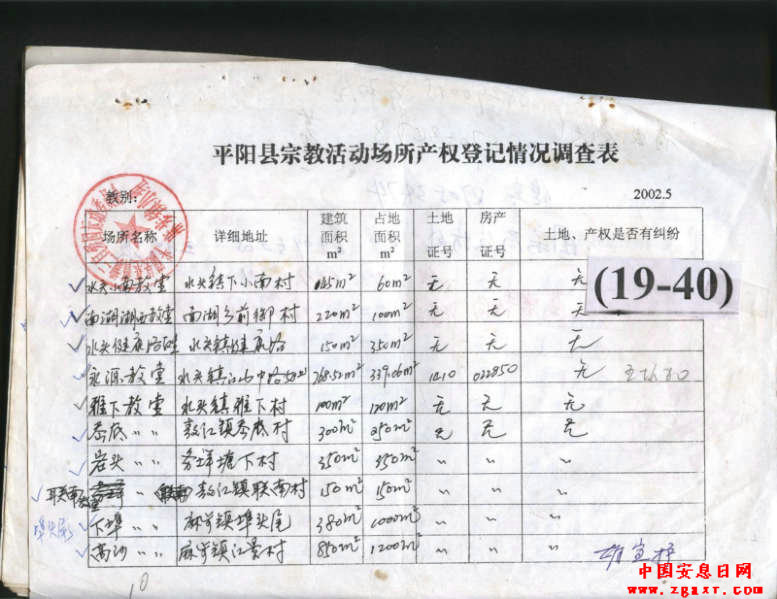 平阳县宗教活动场所产权登记情况调查表
教别: 2002.5
场所名称 详细地址 建筑面积m² 占地面积m² 土地证号 房产证号 土地、产权是否有纠纷
(19-40)
水头小南教堂 水头镇下小南村 145m² 60m² 无 无 无
南湖湖西教堂 南湖乡前柳村 220m² 100m² 无 无 无
水头健康路 水头镇健康路 150m² 350m² 无 无 无
永源教堂 水头镇 768.52m² 339.06m² 1410 022850 无
雅下教堂 水头镇雅下村 100m² 120m² 无 无 无
岙底 〃 〃 敖江镇岙底村 300m² 250m² 无 无 无
岩头 〃 〃 塘下村 350m² 350m² 〃 〃 〃
联南 〃 敖江镇联南村 150m² 150m² 〃 〃 〃
埠头尾 下埠 〃 〃 麻步镇埠头尾 380m² 1000m² 〃 〃 〃
高沙 〃 〃 麻步镇江景村 850m² 1200m² 〃 〃 〃
10
中国安息日网
www.zgaxr.com